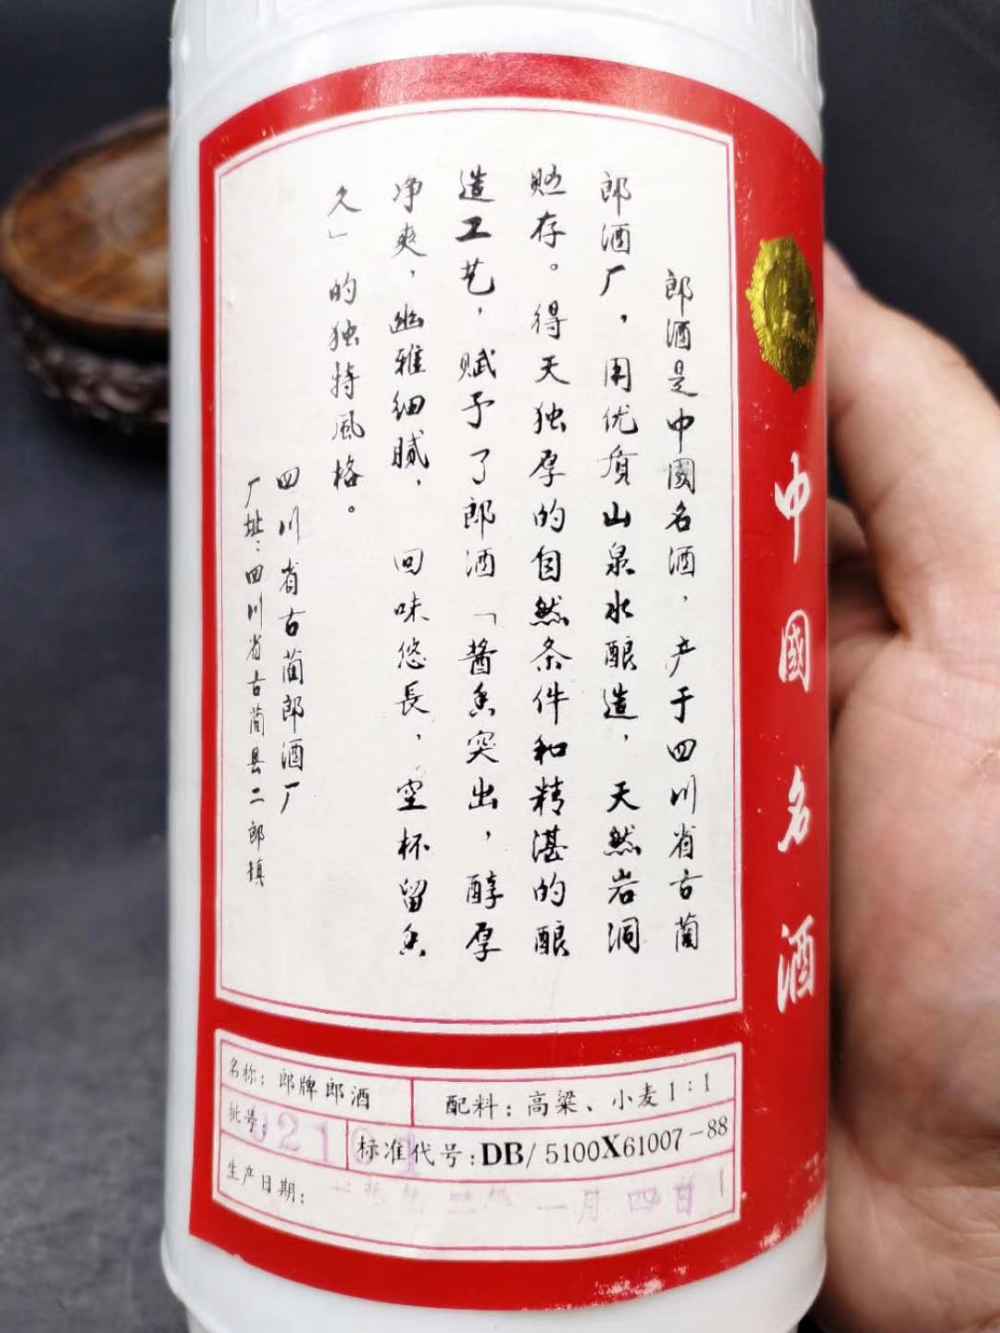 郎酒是中國名酒，产于四川省古蔺
郎酒厂，用优质山泉水酿造，天然岩洞
贮存。得天独厚的自然条件和精湛的酿
造工艺，赋予了郎酒「酱香突出，醇厚
净爽，幽雅细腻，回味悠長，空杯留香
久」的独特風格。
四川省古蔺郎酒厂
厂址：四川省古蔺县二郎镇
中國名酒
名称：郎牌郎酒
配料：高粱、小麦1：1
批号：
标准代号：DB/5100X61007-88
生产日期：
一月四日